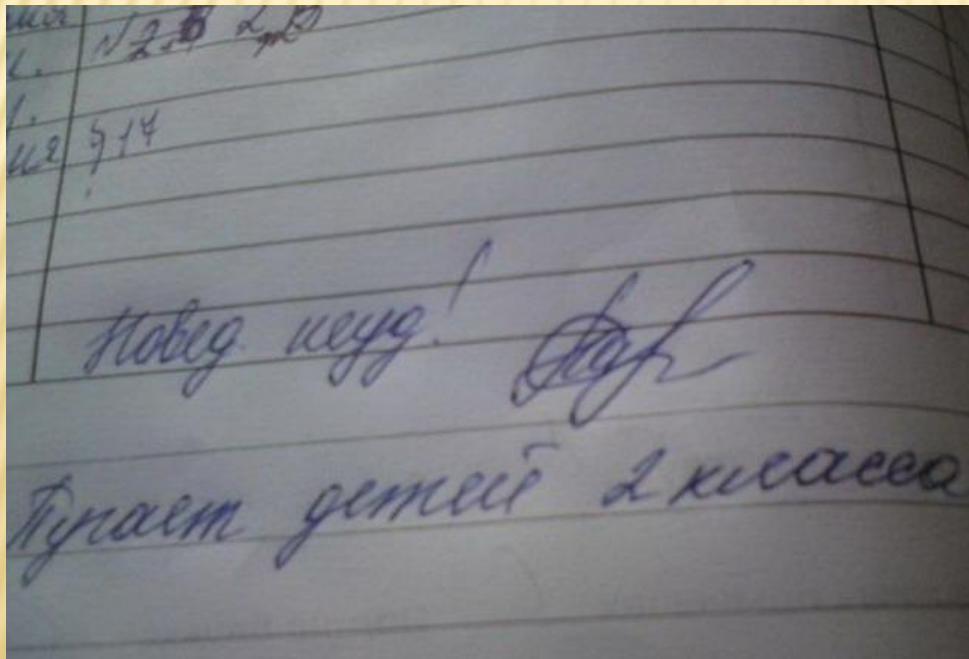 § 17
Повед. неуд!
Пугает детей 2 класса